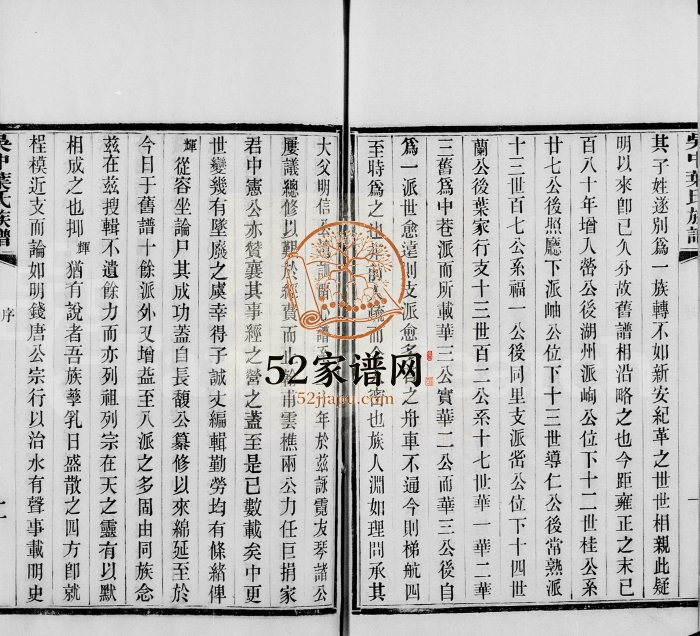 吳中葉氏族譜
其子姓遂別爲一族轉不如新安紀革之世世相親此疑
明以來卽已久分故舊譜相沿略之也今距雍正之末已
百八十年增入嶨公後湖州派峋公位下十二世桂公系
廿七公後照廳下派岫公位下十三世導仁公後常熟派
十三世百七公系福一公後同里支派峃公位下十四世
蘭公後葉家行支十三世百二公系十七世華一華二華
三舊爲中巷派而所載華三公實華二公而華三公後自
爲一派世愈遠則支派愈多 之舟車不通今則梯航四
至時爲之也非前人疏而 密也族人淵如理問承其
大父明信公遺訓 譜 年於茲詠霓友琴諸公
屢議總修以艱於經費而止 甫雲樵兩公力任巨捐家
君中憲公亦贊襄其事經之營之蓋至是已數載矣中更
世變幾有墜廢之虞幸得子誠丈編輯勤勞均有條緒俾
輝從容坐論尸其成功蓋自長馥公纂修以來綿延至於
今日于舊譜十餘派外又增益至八派之多固由同族念
茲在茲搜輯不遺餘力而亦列祖列宗在天之靈有以默
相成之也抑輝猶有說者吾族孳乳日盛散之四方卽就
程模近支而論如明錢唐公宗行以治水有聲事載明史
吳中葉氏族譜
序
十一
52家谱网
52jiapu.com